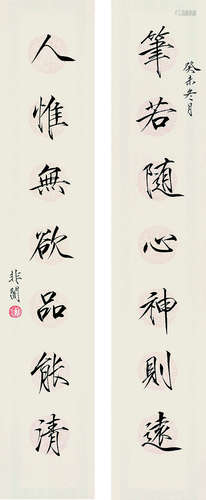 癸未冬月
筆若隨心神則遠
人惟無欲品能清
非闇